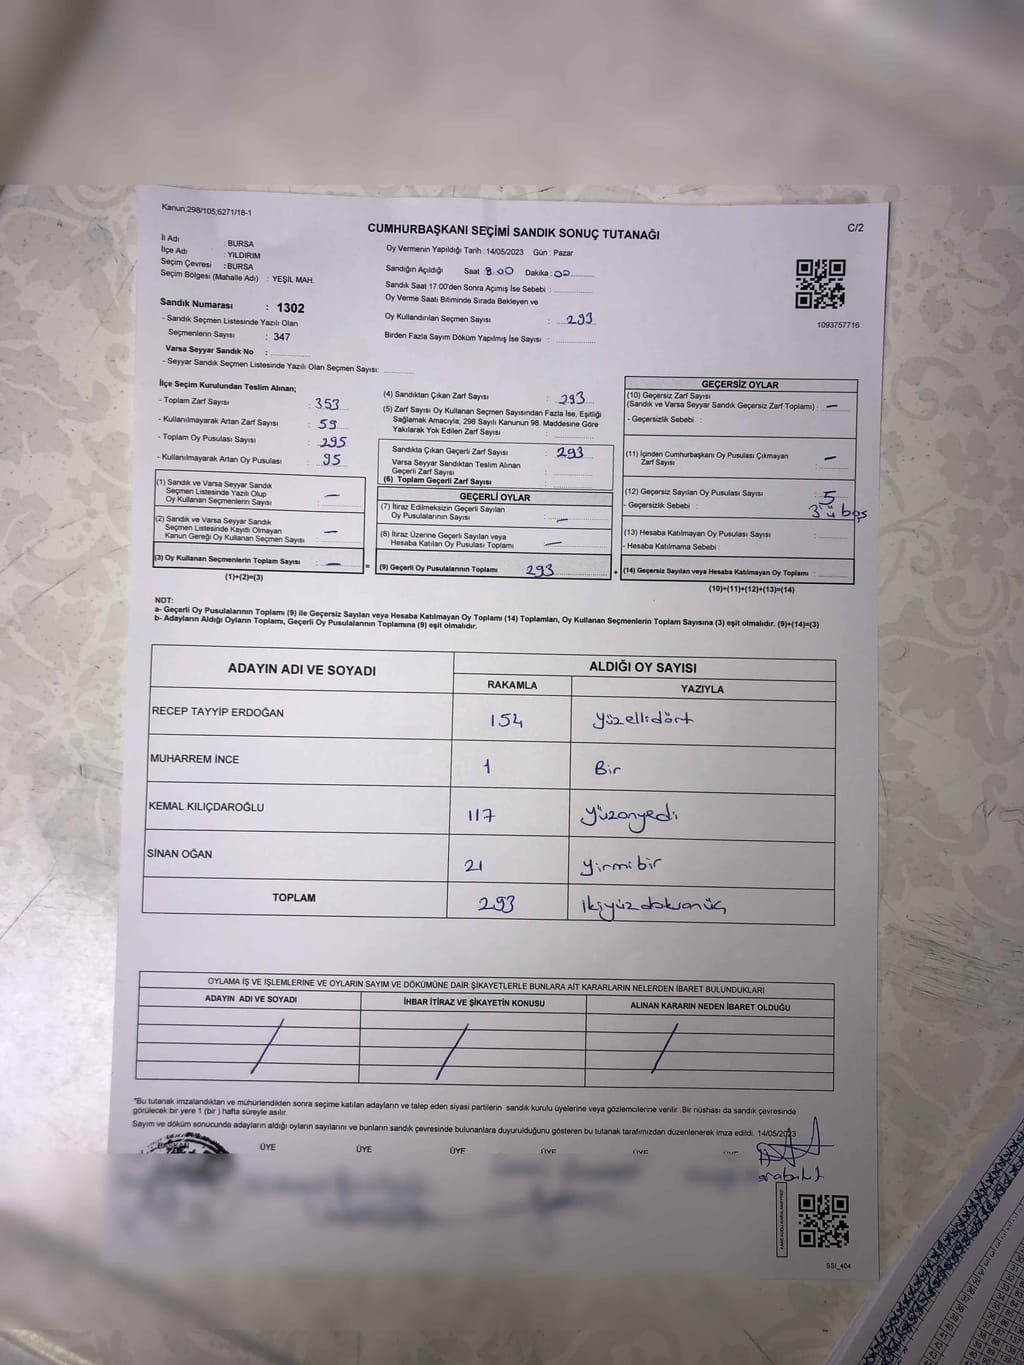 Kanun;298/105;6271/18-1
C/2
CUMHURBAŞKANI SEÇİMİ SANDIK SONUÇ TUTANAĞI
İl Adı : BURSA
İlçe Adı : YILDIRIM
Seçim Çevresi : BURSA
Seçim Bölgesi (Mahalle Adı) : YEŞİL MAH.
Sandık Numarası : 1302
- Sandık Seçmen Listesinde Yazılı Olan
Seçmenlerin Sayısı : 347
Varsa Seyyar Sandık No :
- Seyyar Sandık Seçmen Listesinde Yazılı Olan Seçmen Sayısı:
Oy Vermenin Yapıldığı Tarih :14/05/2023 Gün : Pazar
Sandığın Açıldığı Saat 8:00 Dakika : 00
Sandık Saat 17:00'den Sonra Açımış İse Sebebi :
Oy Verme Saati Bitiminde Sırada Bekleyen ve
Oy Kullandırılan Seçmen Sayısı : 293
Birden Fazla Sayım Döküm Yapılmış İse Sayısı :
1093757716
İlçe Seçim Kurulundan Teslim Alınan;
- Toplam Zarf Sayısı : 353
- Kullanılmayarak Artan Zarf Sayısı : 59
- Toplam Oy Pusulası Sayısı : 295
- Kullanılmayarak Artan Oy Pusulası : 95
(1) Sandık ve Varsa Seyyar Sandık
Seçmen Listesinde Yazılı Olup
Oy Kullanan Seçmenlerin Sayısı : —
(2) Sandık ve Varsa Seyyar Sandık
Seçmen Listesinde Kayıtlı Olmayan
Kanun Gereği Oy Kullanan Seçmen Sayısı : —
(3) Oy Kullanan Seçmenlerin Toplam Sayısı : —
(1)+(2)=(3)
(4) Sandıktan Çıkan Zarf Sayısı : 293
(5) Zarf Sayısı Oy Kullanan Seçmen Sayısından Fazla İse, Eşitliği
Sağlamak Amacıyla; 298 Sayılı Kanunun 98. Maddesine Göre
Yakılarak Yok Edilen Zarf Sayısı :
Sandıkta Çıkan Geçerli Zarf Sayısı : 293
Varsa Seyyar Sandıktan Teslim Alınan
Geçerli Zarf Sayısı :
(6) Toplam Geçerli Zarf Sayısı :
GEÇERLİ OYLAR
(7) İtiraz Edilmeksizin Geçerli Sayılan
Oy Pusulalarının Sayısı : —
(8) İtiraz Üzerine Geçerli Sayılan veya
Hesaba Katılan Oy Pusulası Toplamı : —
= (9) Geçerli Oy Pusulalarının Toplamı 293 +
GEÇERSİZ OYLAR
(10) Geçersiz Zarf Sayısı
(Sandık ve Varsa Seyyar Sandık Geçersiz Zarf Toplamı) : —
- Geçersizlik Sebebi :
(11) İçinden Cumhurbaşkanı Oy Pusulası Çıkmayan
Zarf Sayısı : —
(12) Geçersiz Sayılan Oy Pusulası Sayısı : 5
- Geçersizlik Sebebi : 3'ü boş
(13) Hesaba Katılmayan Oy Pusulası Sayısı :
- Hesaba Katılmama Sebebi :
(14) Geçersiz Sayılan veya Hesaba Katılmayan Oy Toplamı :
(10)+(11)+(12)+(13)=(14)
NOT:
a- Geçerli Oy Pusulalarının Toplamı (9) ile Geçersiz Sayılan veya Hesaba Katılmayan Oy Toplamı (14) Toplamları, Oy Kullanan Seçmenlerin Toplam Sayısına (3) eşit olmalıdır. (9)+(14)=(3)
b- Adayların Aldığı Oyların Toplamı, Geçerli Oy Pusulalarının Toplamına (9) eşit olmalıdır.
ADAYIN ADI VE SOYADI ALDIĞI OY SAYISI
RAKAMLA YAZIYLA
RECEP TAYYİP ERDOĞAN 154 yüzellidört
MUHARREM İNCE 1 Bir
KEMAL KILIÇDAROĞLU 117 yüzonyedi
SİNAN OĞAN 21 yirmibir
TOPLAM 293 ikiyüzdoksanüç
OYLAMA İŞ VE İŞLEMLERİNE VE OYLARIN SAYIM VE DÖKÜMÜNE DAİR ŞİKAYETLERLE BUNLARA AİT KARARLARIN NELERDEN İBARET BULUNDUKLARI
ADAYIN ADI VE SOYADI İHBAR İTİRAZ VE ŞİKAYETİN KONUSU ALINAN KARARIN NEDEN İBARET OLDUĞU
*Bu tutanak imzalandıktan ve mühürlendikten sonra seçime katılan adayların ve talep eden siyasi partilerin sandık kurulu üyelerine veya gözlemcilerine verilir. Bir nüshası da sandık çevresinde
görülecek bir yere 1 (bir ) hafta süreyle asılır.
Sayım ve döküm sonucunda adayların aldığı oyların sayılarını ve bunların sandık çevresinde bulunanlara duyurulduğunu gösteren bu tutanak tarafımızdan düzenlenerek imza edildi. 14/05/2023
ÜYE ÜYE ÜYE ÜYE ÜYE ÜYE
SSI_404